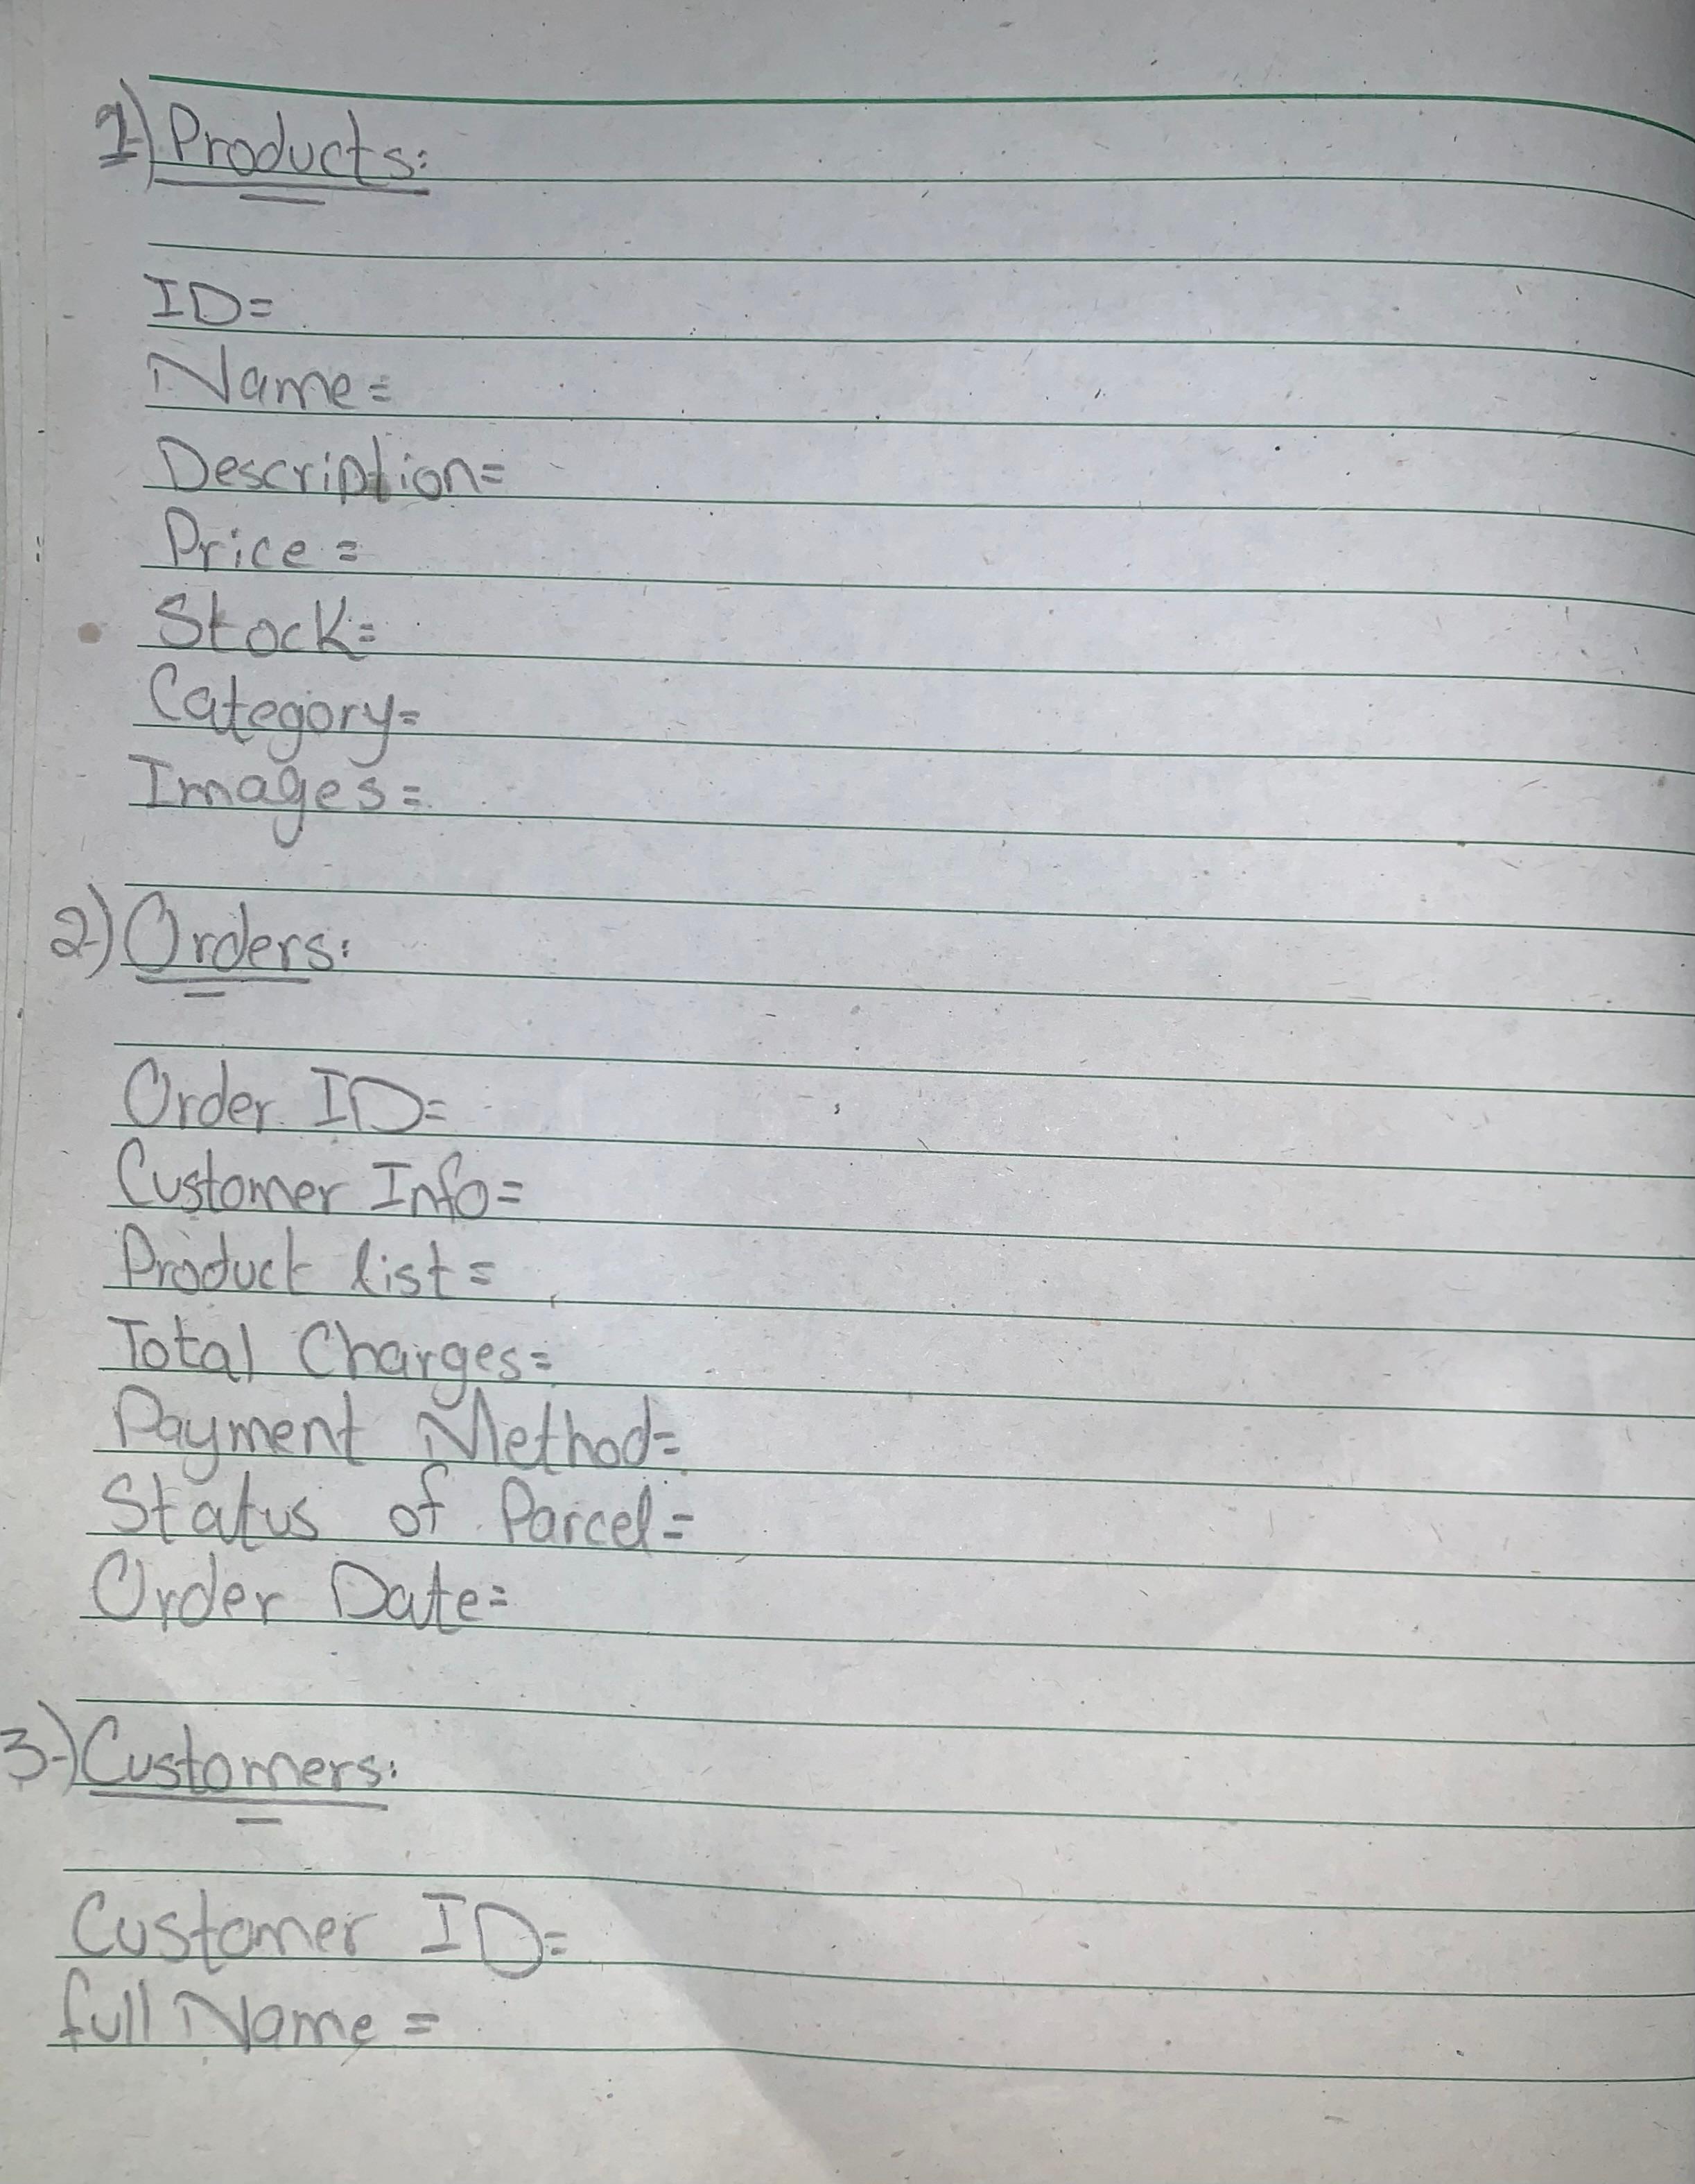 1) Products:
ID=
Name=
Description=
Price=
Stock=
Category=
Images=
2) Orders:
Order ID=
Customer Info=
Product list=
Total Charges=
Payment Method=
Status of Parcel=
Order Date=
3-) Customers:
Customer ID=
full Name=